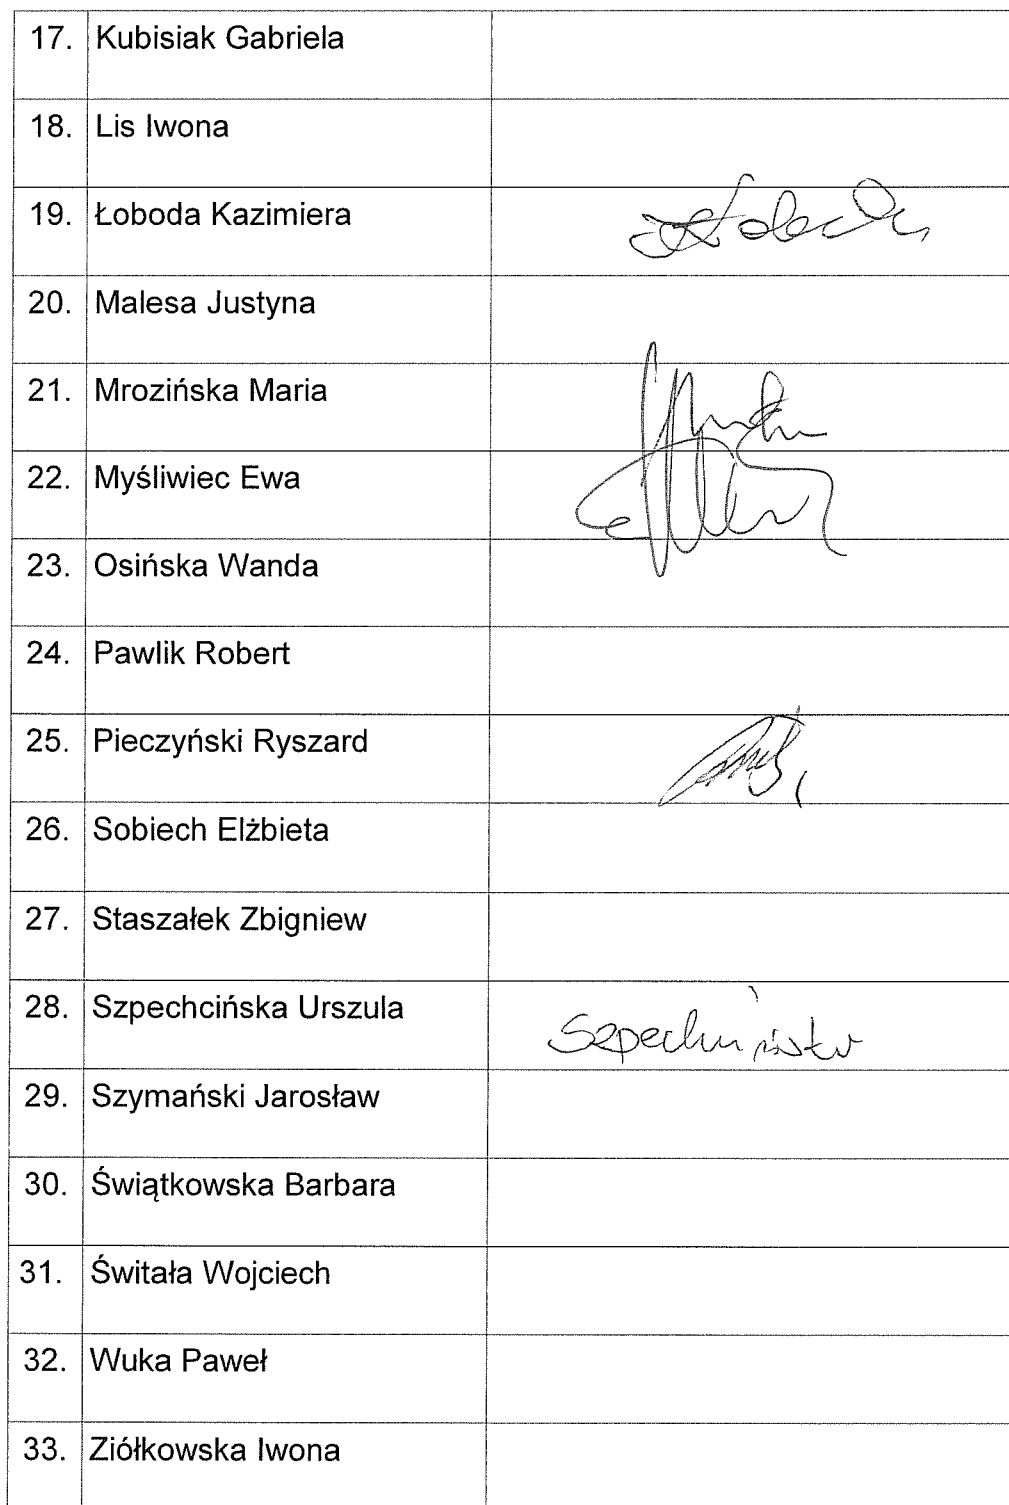 17. Kubisiak Gabriela
18. Lis Iwona
19. Łoboda Kazimiera
20. Malesa Justyna
21. Mrozińska Maria
22. Myśliwiec Ewa
23. Osińska Wanda
24. Pawlik Robert
25. Pieczyński Ryszard
26. Sobiech Elżbieta
27. Staszałek Zbigniew
28. Szpechcińska Urszula
29. Szymański Jarosław
30. Świątkowska Barbara
31. Świtała Wojciech
32. Wuka Paweł
33. Ziółkowska Iwona